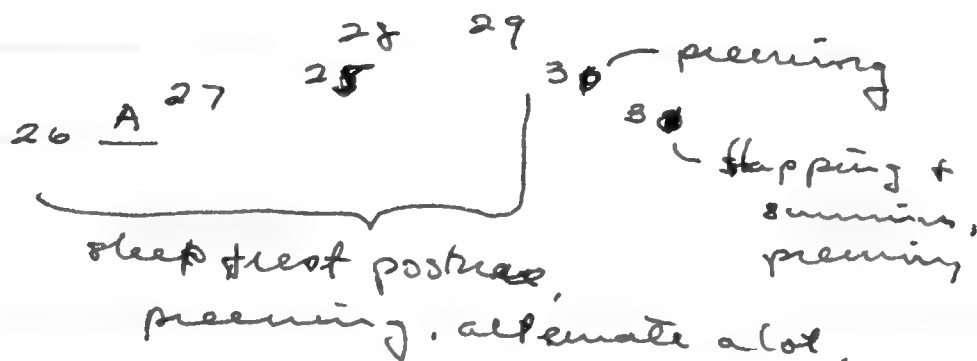 28 29
28 30 preening
26 A 27 30
flapping +
sunning,
preening
sleep + rest postures,
preening, alternate a lot.